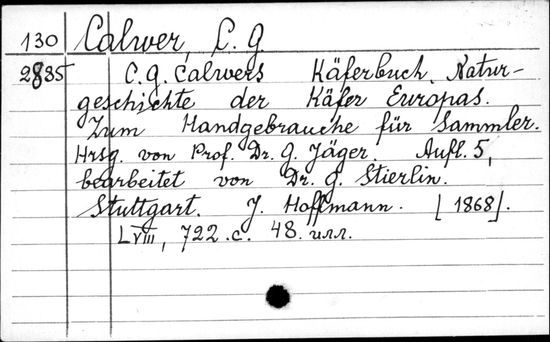 130 Calwer, C. G
2835 C. G. Calwers Käferbuch. Natur-
geschichte der Käfer Europas.
Zum Handgebrauche für Sammler.
Hrsg. von Prof. Dr. G. Jäger. Aufl. 5,
bearbeitet von Dr. G. Stierlin.
Stuttgart. J. Hoffmann. [1868].
LVIII, 722 .c. 48. илл.